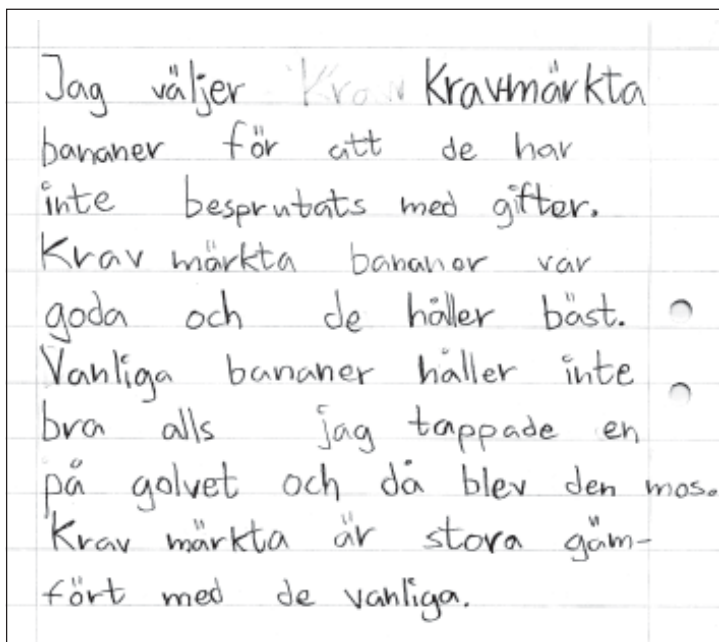 Jag väljer Krav Kravmärkta
bananer för att de har
inte besprutats med gifter.
Krav märkta bananor var
goda och de håller bäst.
Vanliga bananer håller inte
bra alls jag tappade en
på golvet och då blev den mos.
Krav märkta är stora gäm-
fört med de vanliga.